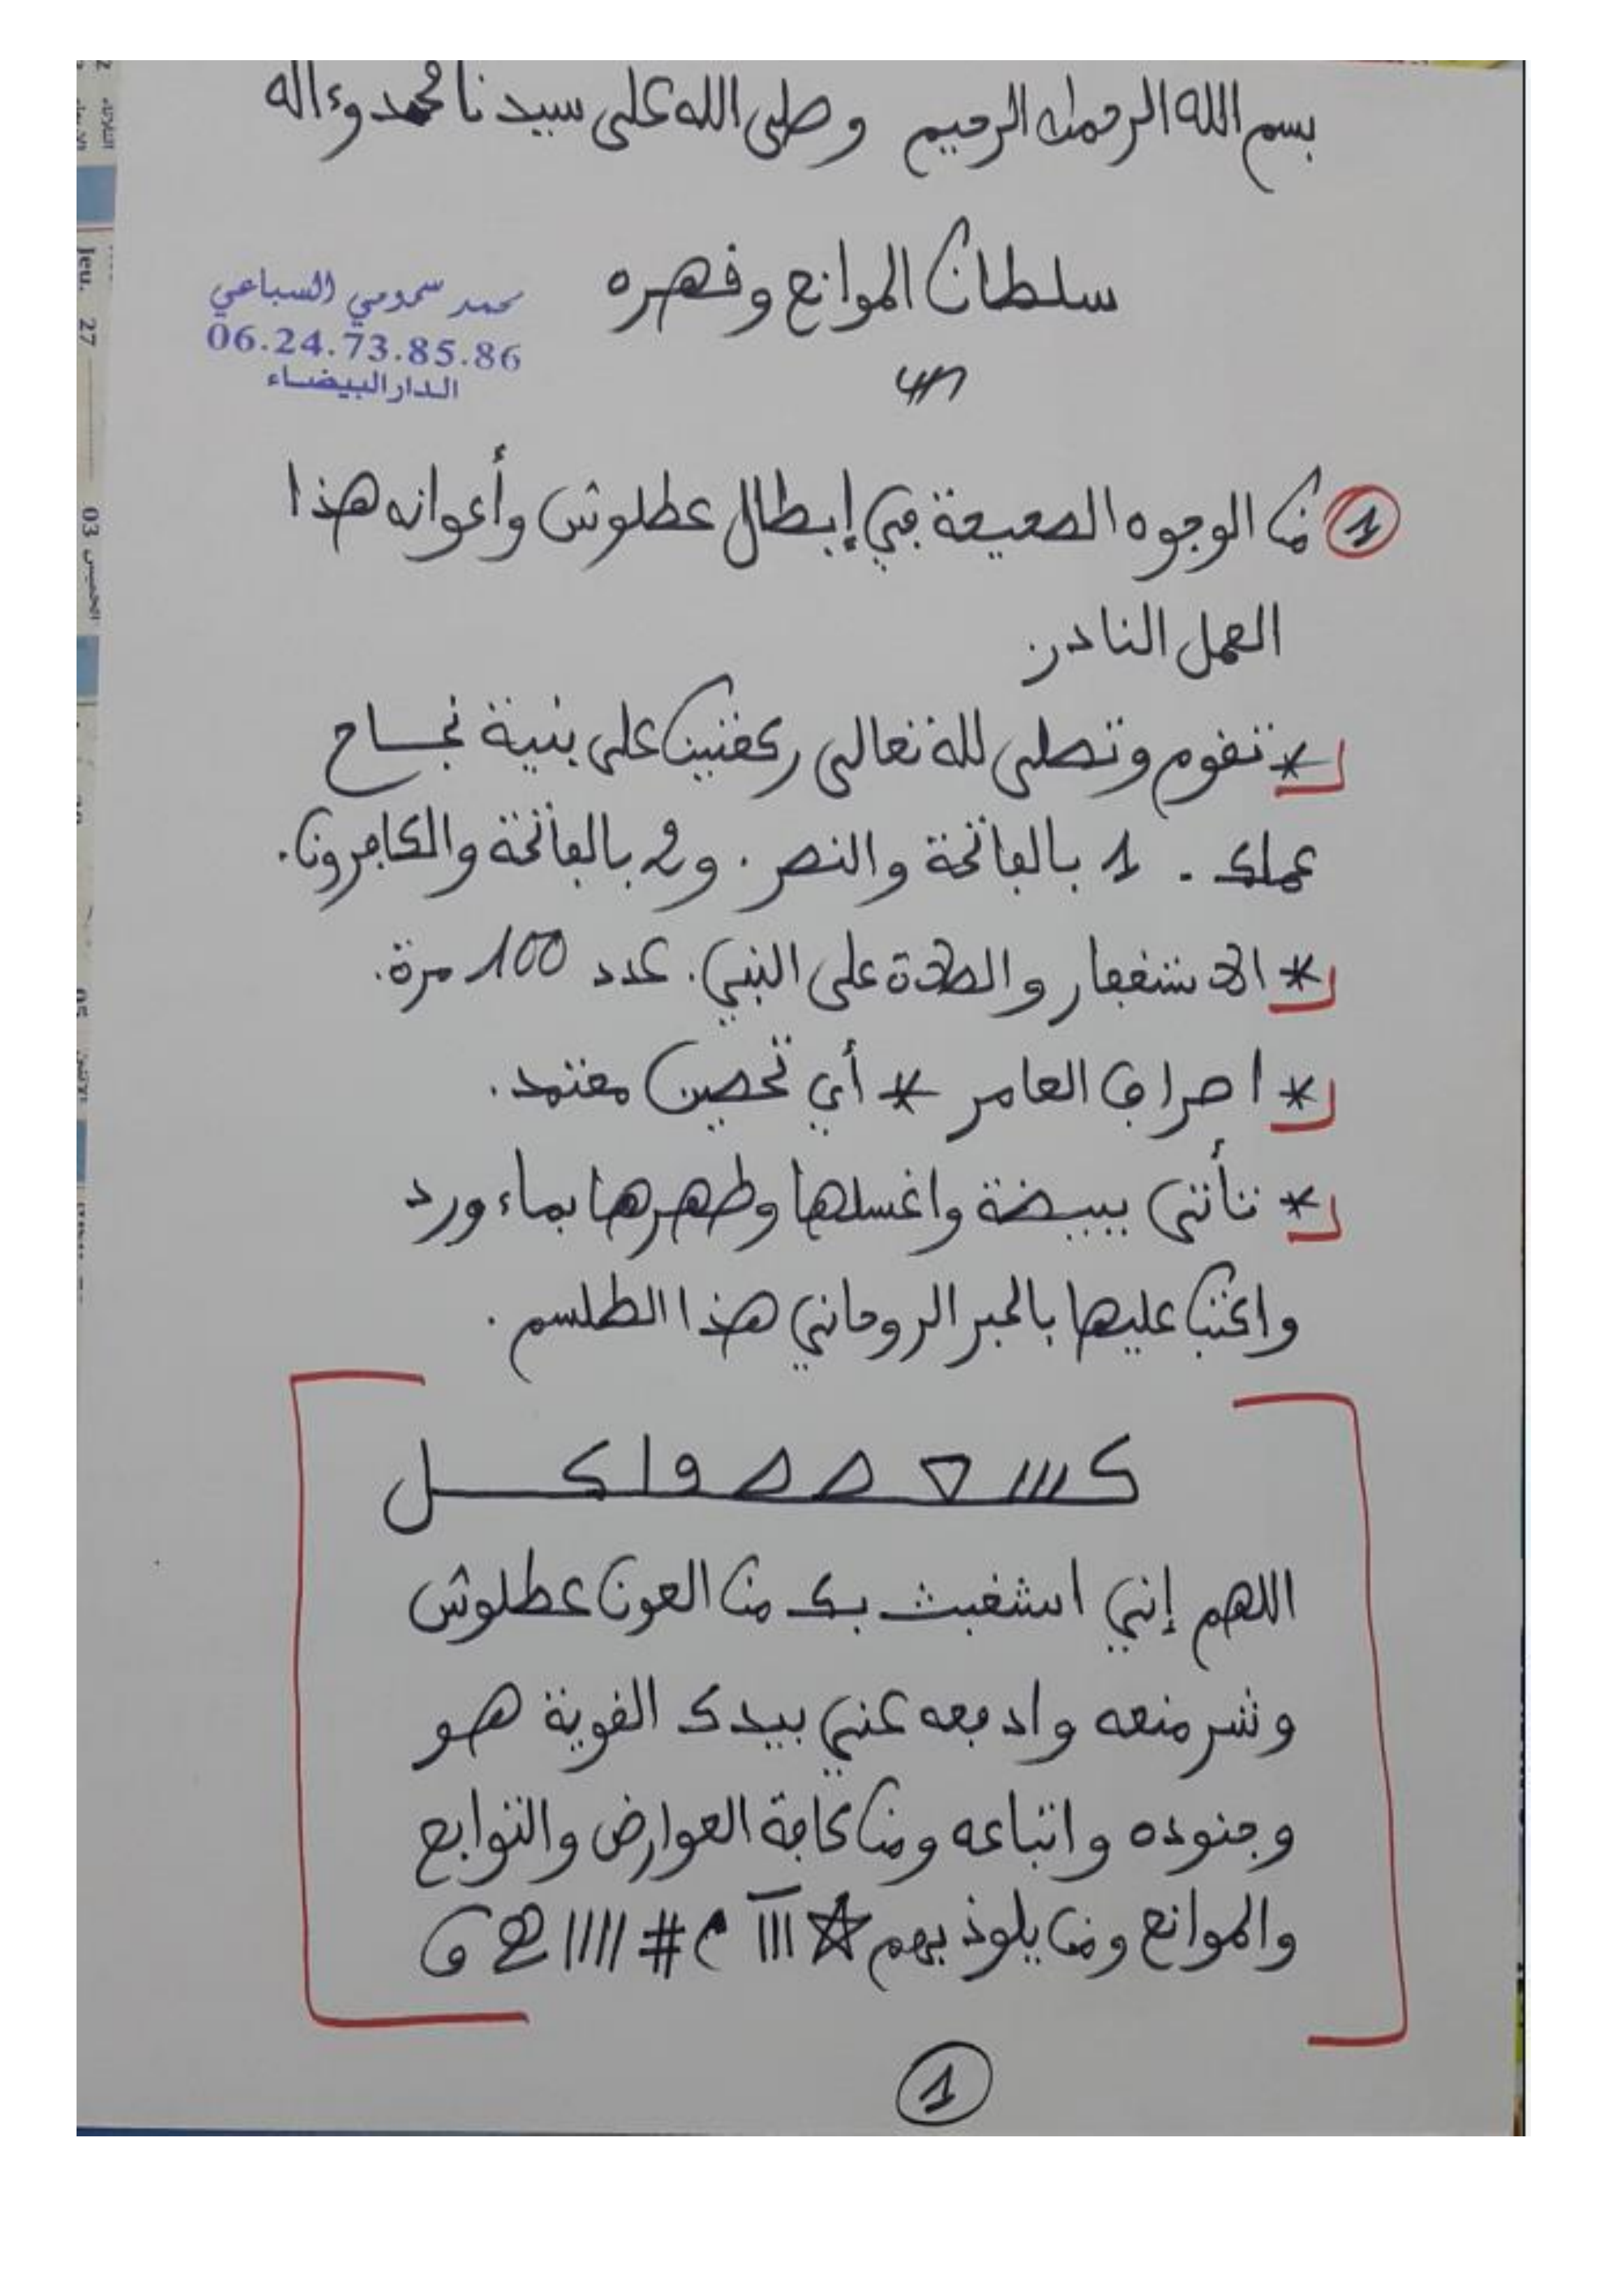 بسم الله الرحمان الرحيم وصلى الله على سيدنا محمد وءاله
سلطان الموانع وقهره
محمد سمومي السباعي
06.24.73.85.86
الدار البيضاء
1 من الوجوه الصحيحة في إبطال عطلوش وأعوانه هذا
العمل النادر.
* تقوم وتصلى لله تعالى ركعتين على بنية نجاح
عملك . 1 بالفاتحة والنصر . و2 بالفاتحة والكافرون.
* الاستغفار والصلاة على النبي. عدد 100 مرة.
* احراق العامر * أي تحصين معتمد.
* تأتى ببيضة واغسلها وطهرها بماء ورد
واكتب عليها بالحبر الروحاني هذا الطلسم .
اللهم إني استغيث بك من العون عطلوش
وشر منعه وادفعه عني بيدك القوية هو
وجنوده واتباعه ومن كافة العوارض والتوابع
والموانع ومن يلوذ بهم
1
Jeu. 27
الخميس 03